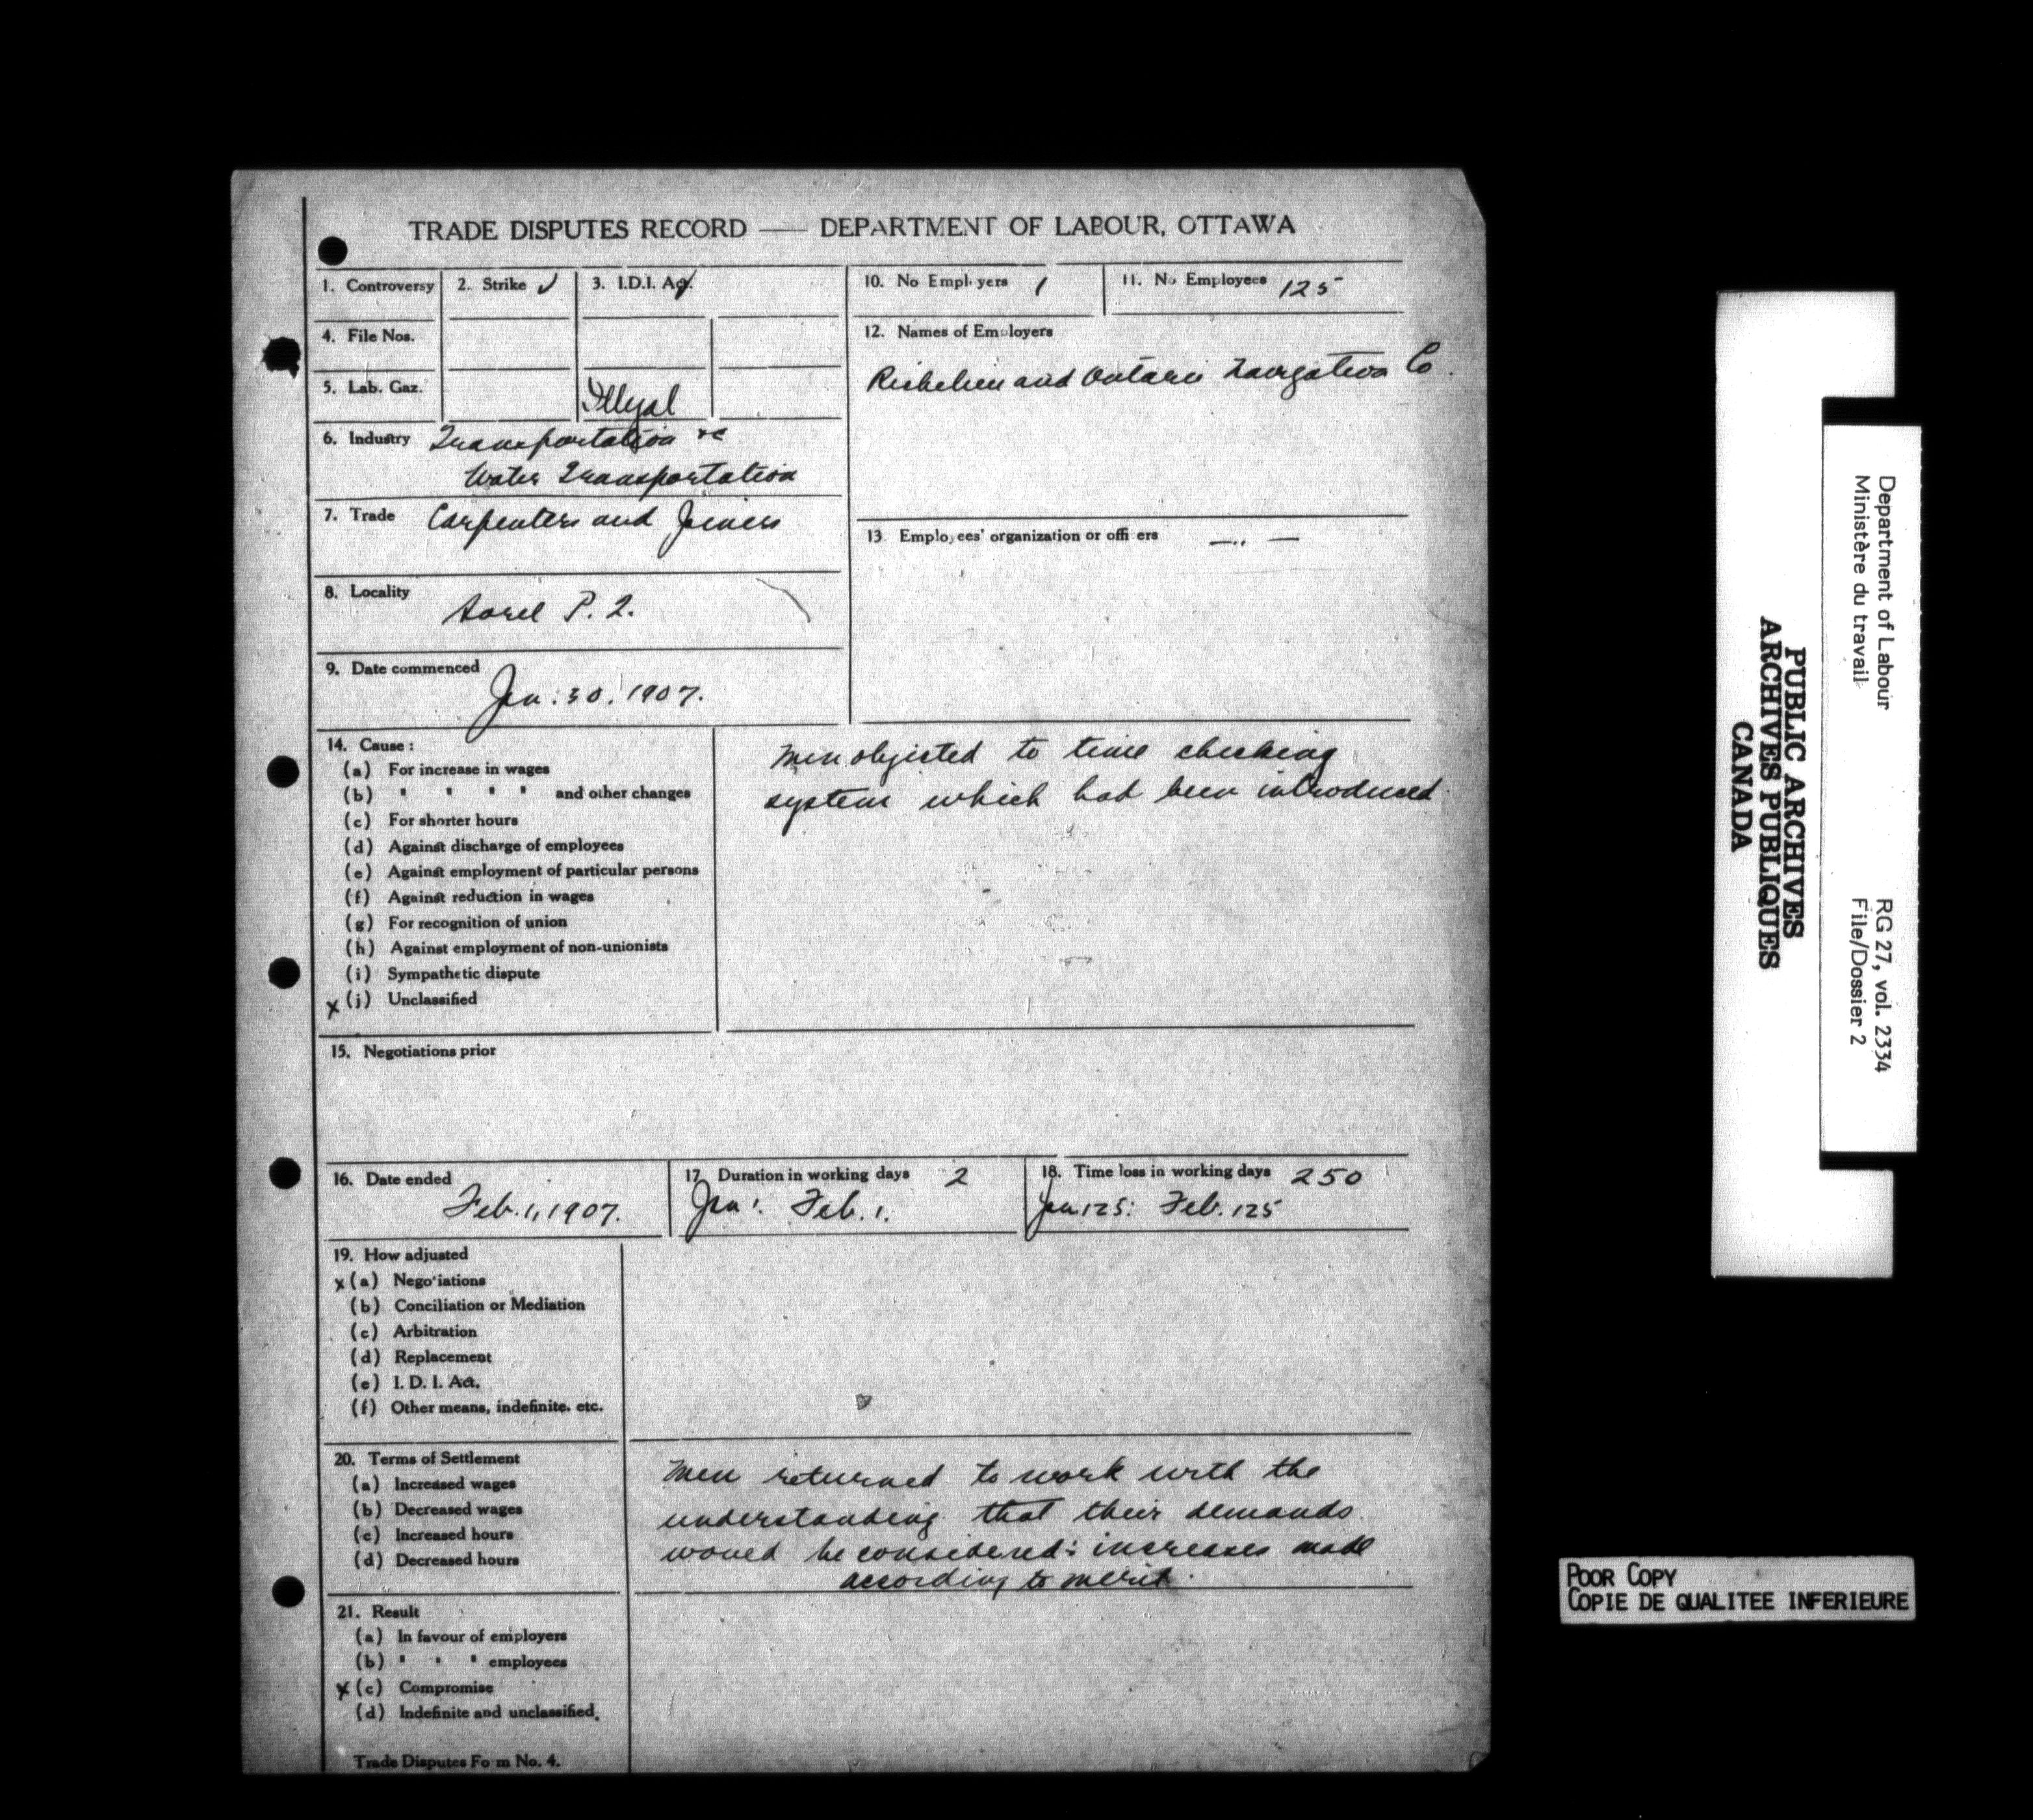 TRADE DISPUTES RECORD — DEPARTMENT OF LABOUR, OTTAWA
1. Controversy
2. Strike ✓
3. I.D.I. Act.
4. File Nos.
5. Lab. Gaz.
Illegal
6. Industry Transportation &c
Water Transportation
7. Trade Carpenters and Joiners
8. Locality
Sorel P.Q.
9. Date commenced
Jan. 30, 1907.
10. No Employers 1
11. No Employees 125
12. Names of Employers
Richelieu and Ontario Navigation Co.
13. Employees' organization or officers — " —
14. Cause:
(a) For increase in wages
(b) " " " " and other changes
(c) For shorter hours
(d) Against discharge of employees
(e) Against employment of particular persons
(f) Against reduction in wages
(g) For recognition of union
(h) Against employment of non-unionists
(i) Sympathetic dispute
x (j) Unclassified
Men objected to time checking
system which had been introduced.
15. Negotiations prior
16. Date ended
Feb. 1, 1907.
17. Duration in working days 2
Jan 1. Feb. 1.
18. Time loss in working days 250
Jan 125: Feb. 125
19. How adjusted
x (a) Negotiations
(b) Conciliation or Mediation
(c) Arbitration
(d) Replacement
(e) I. D. I. Act.
(f) Other means, indefinite. etc.
20. Terms of Settlement
(a) Increased wages
(b) Decreased wages
(c) Increased hours
(d) Decreased hours
Men returned to work with the
understanding that their demands
would be considered: increases made
according to merit.
21. Result
(a) In favour of employers
(b) " " " employees
x (c) Compromise
(d) Indefinite and unclassified.
Trade Disputes Form No. 4.
Department of Labour
Ministère du travail
RG 27, vol. 2334
File/Dossier 2
PUBLIC ARCHIVES
ARCHIVES PUBLIQUES
CANADA
POOR COPY
COPIE DE QUALITEE INFERIEURE